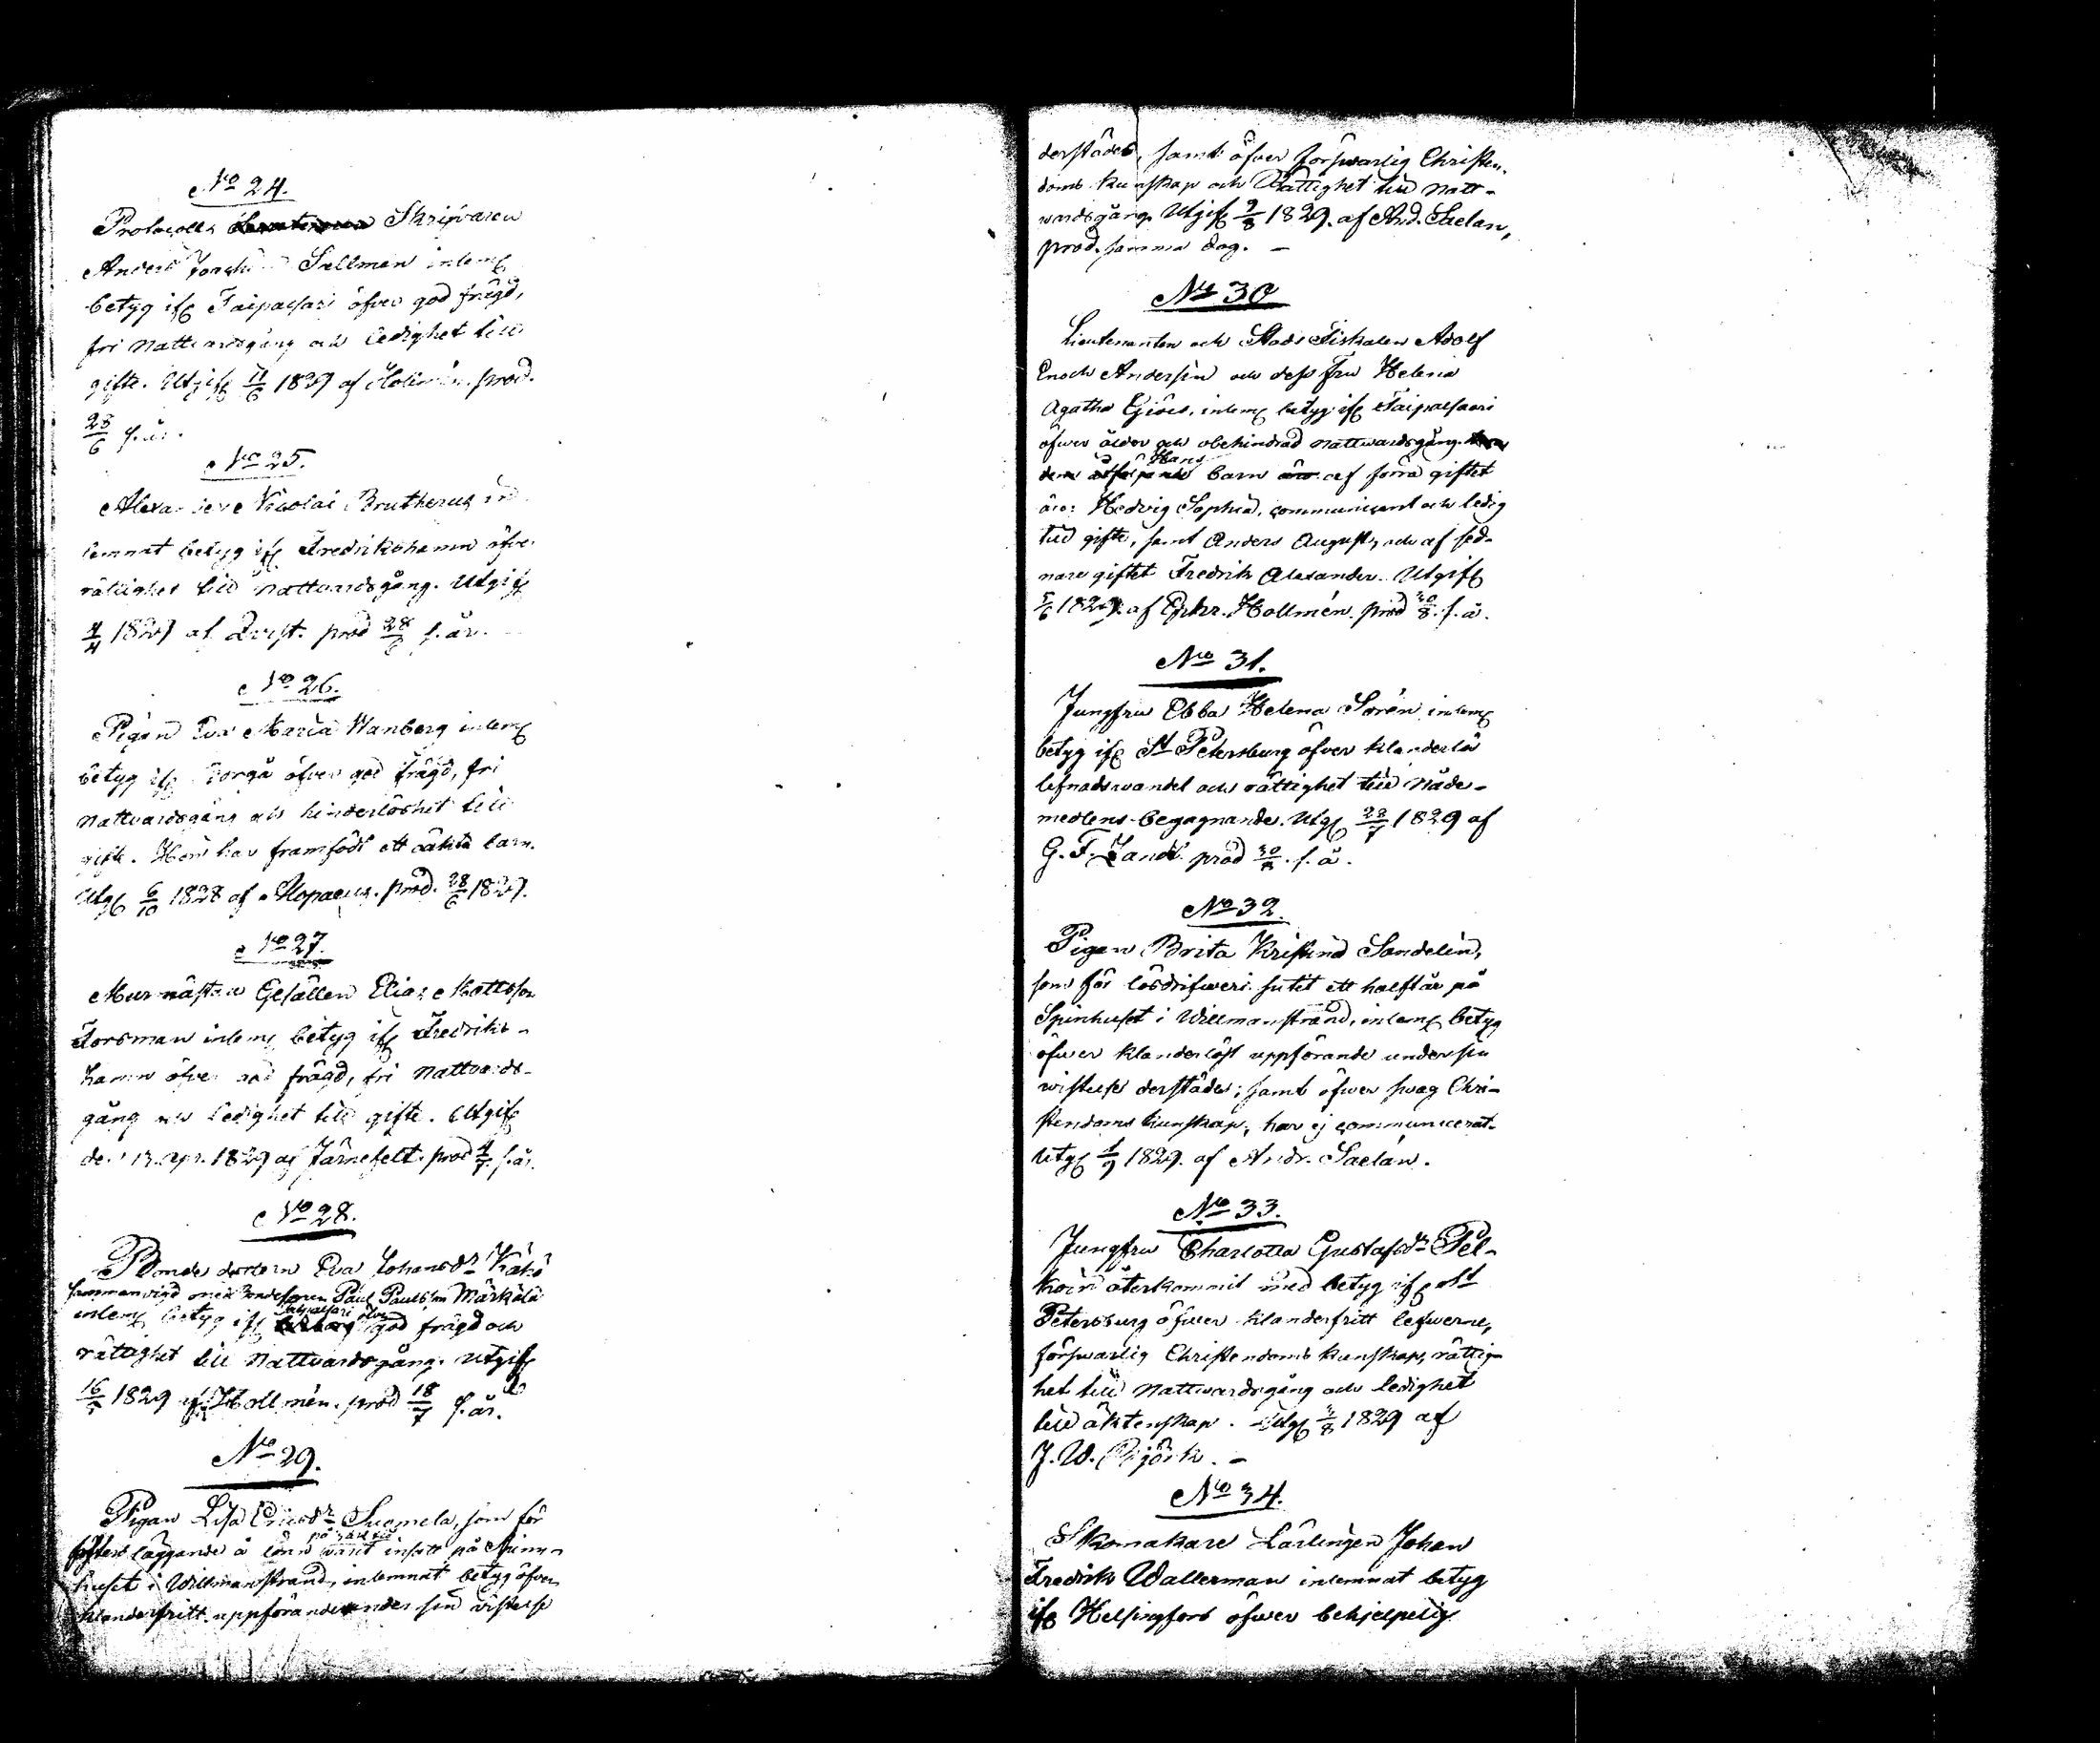 No 24.
Protocolls Skrifvaren
Anders Joachim Sellman inlemn
betyg ifr Taipalsari öfver god frägd,
fri nattvardsgång och ledighet till
gifte. Utgifv 11/6 1829 af Hollmén. prod.
28/6 s. år.
No 25.
Alexander Nicolai Brutherus in
lemnat betyg ifr Fredrikshamn öfver
rättighet till nattvardsgång. Utgifv
4/4 1829 af Qvist. prod 28/6 s. år.
No 26.
Pigan Eva Maria Wanberg inlemn
betyg ifr Borgå öfver god frägd, fri
nattvardsgång och hinderlöshet till
gifte. Hon har framfödt ett oäkta barn.
Utgf 6/10 1828 af Alopaeus. prod. 28/6 1829.
No 27.
Murmästare Gesällen Elias Mattsson
Forsman inlemn betyg ifr Fredriks-
hamn öfver god frägd, fri nattvards-
gång och ledighet till gifte. Utgifv
de 13. apr. 1829 af Järnefelt. prod 4/7 s. år.
No 28.
Bonde dottern Eva Johansdr Kähö
sammanvigd med Bondesonen Paul Paulsson Märkälä
inlemn betyg ifr Taipalsari öfver god frägd och
rättighet till nattvardsgång. Utgifv
1829 af Hollmén. prod 18/7 s. år.
No 29.
Pigan Lisa Ericsdr Suomela, som för
fosters läggande å lönn varit insatt på Spinn-
huset i Willmanstrand, inlemnat betyg öfver
klanderfritt uppförande under sin vistelse
derstädes, samt öfver försvarlig Christen-
doms kunskap och Rättighet till natt-
vardsgång. Utgifv 9/8 1829. af And. Saelan,
prod. samma dag. -
No 30
Lieutenanten och Stads Fiskalen Adolf
Enoch Andersin och dess Fru Helena
Agatha Giöes, inlemn betyg ifr Taipalsaari
öfver ålder och obehindrad nattvardsgång.
Hans barn af förra giftet
äro: Hedvig Sophia, communicant och ledig
till gifte, samt Anders August, och af sed-
nare giftet Fredrik Alexander. Utgifv
5/6 1829. af Ephr. Hollmén. prod 30/8. s. å.
No 31.
Jungfru Ebba Helena Sorén inlemn
betyg ifr St Petersburg öfver klanderlös
lefnadsvandel och rättighet till Nåde-
medlens begagnande. Utgf 22/7 1829 af
G. F. Zandt. prod 30/8. s. å.
No 32.
Pigan Brita Kristina Sandelin,
som för lösdrifveri sutit ett halft år på
Spinhuset i Willmanstrand, inlemn betyg
öfwer klanderlöst uppförande under sin
wistelse derstädes; samt öfwer swag Chri-
stendoms kunskap, har ej communicerat.
Utgf 1/9 1829. af Andr. Saelan.
No 33.
Jungfru Charlotta Gustafsdr Pel-
koin återkommit med betyg ifr St
Petersburg öfwer klanderfritt lefwerne,
förswarlig Christendoms kunskap, rättig-
het till nattwardsgång och ledighet
till äktenskap. Utgf 3/8 1829 af
J. W. Björk. -
No 34.
Skomakare Lärlingen Johan
Fredrik Wallerman inlemnat betyg
ifr Helsingfors öfwer behjelpelig